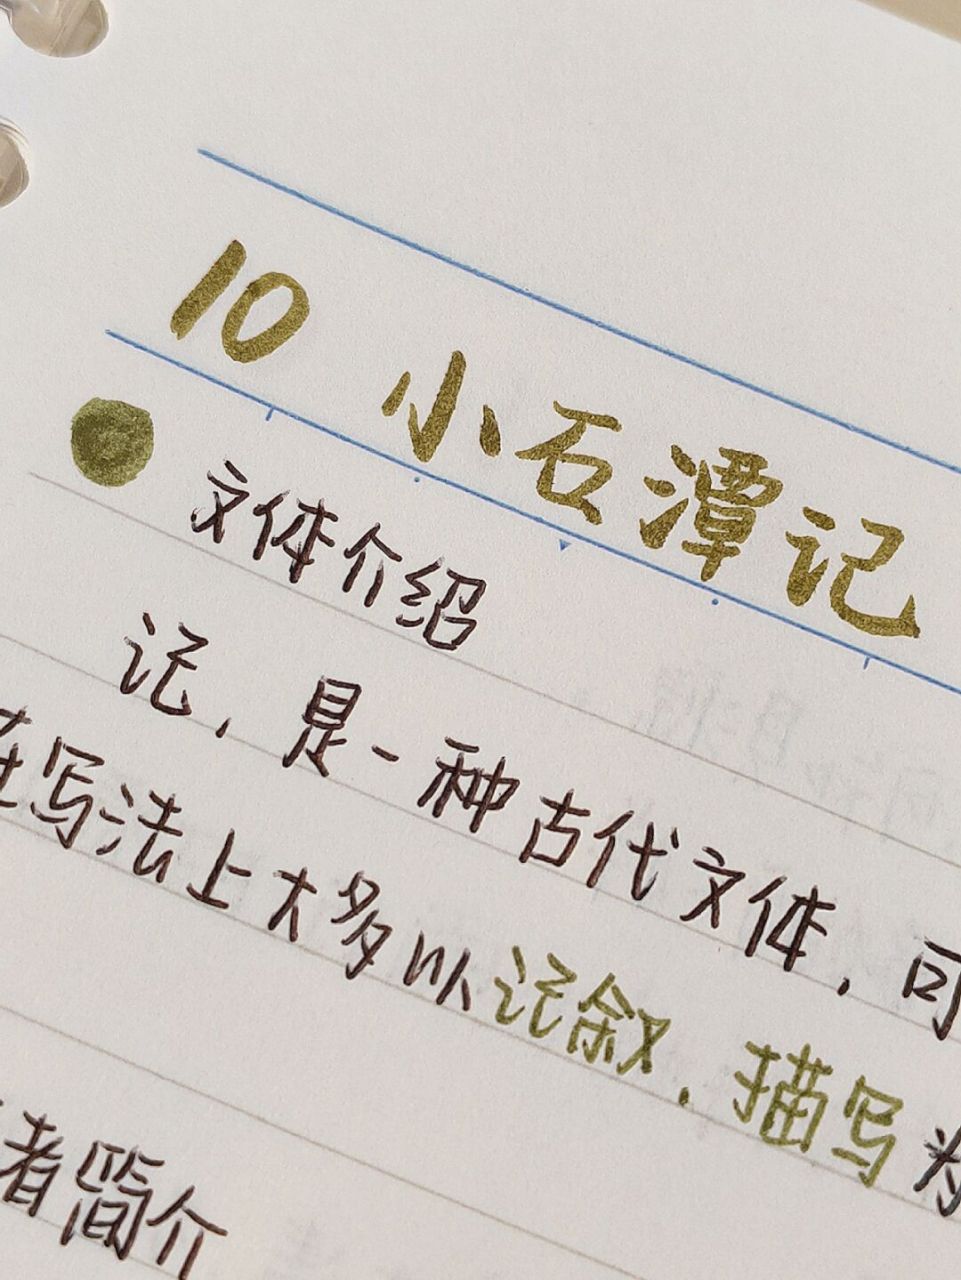 10 小石潭记
文体介绍
记，是一种古代文体，可
在写法上大多以记叙、描写为
者简介